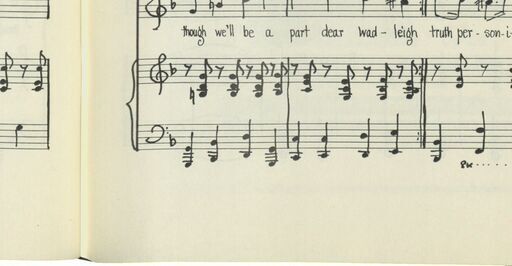 though we'll be a part dear wad-leigh truth per-son-i-